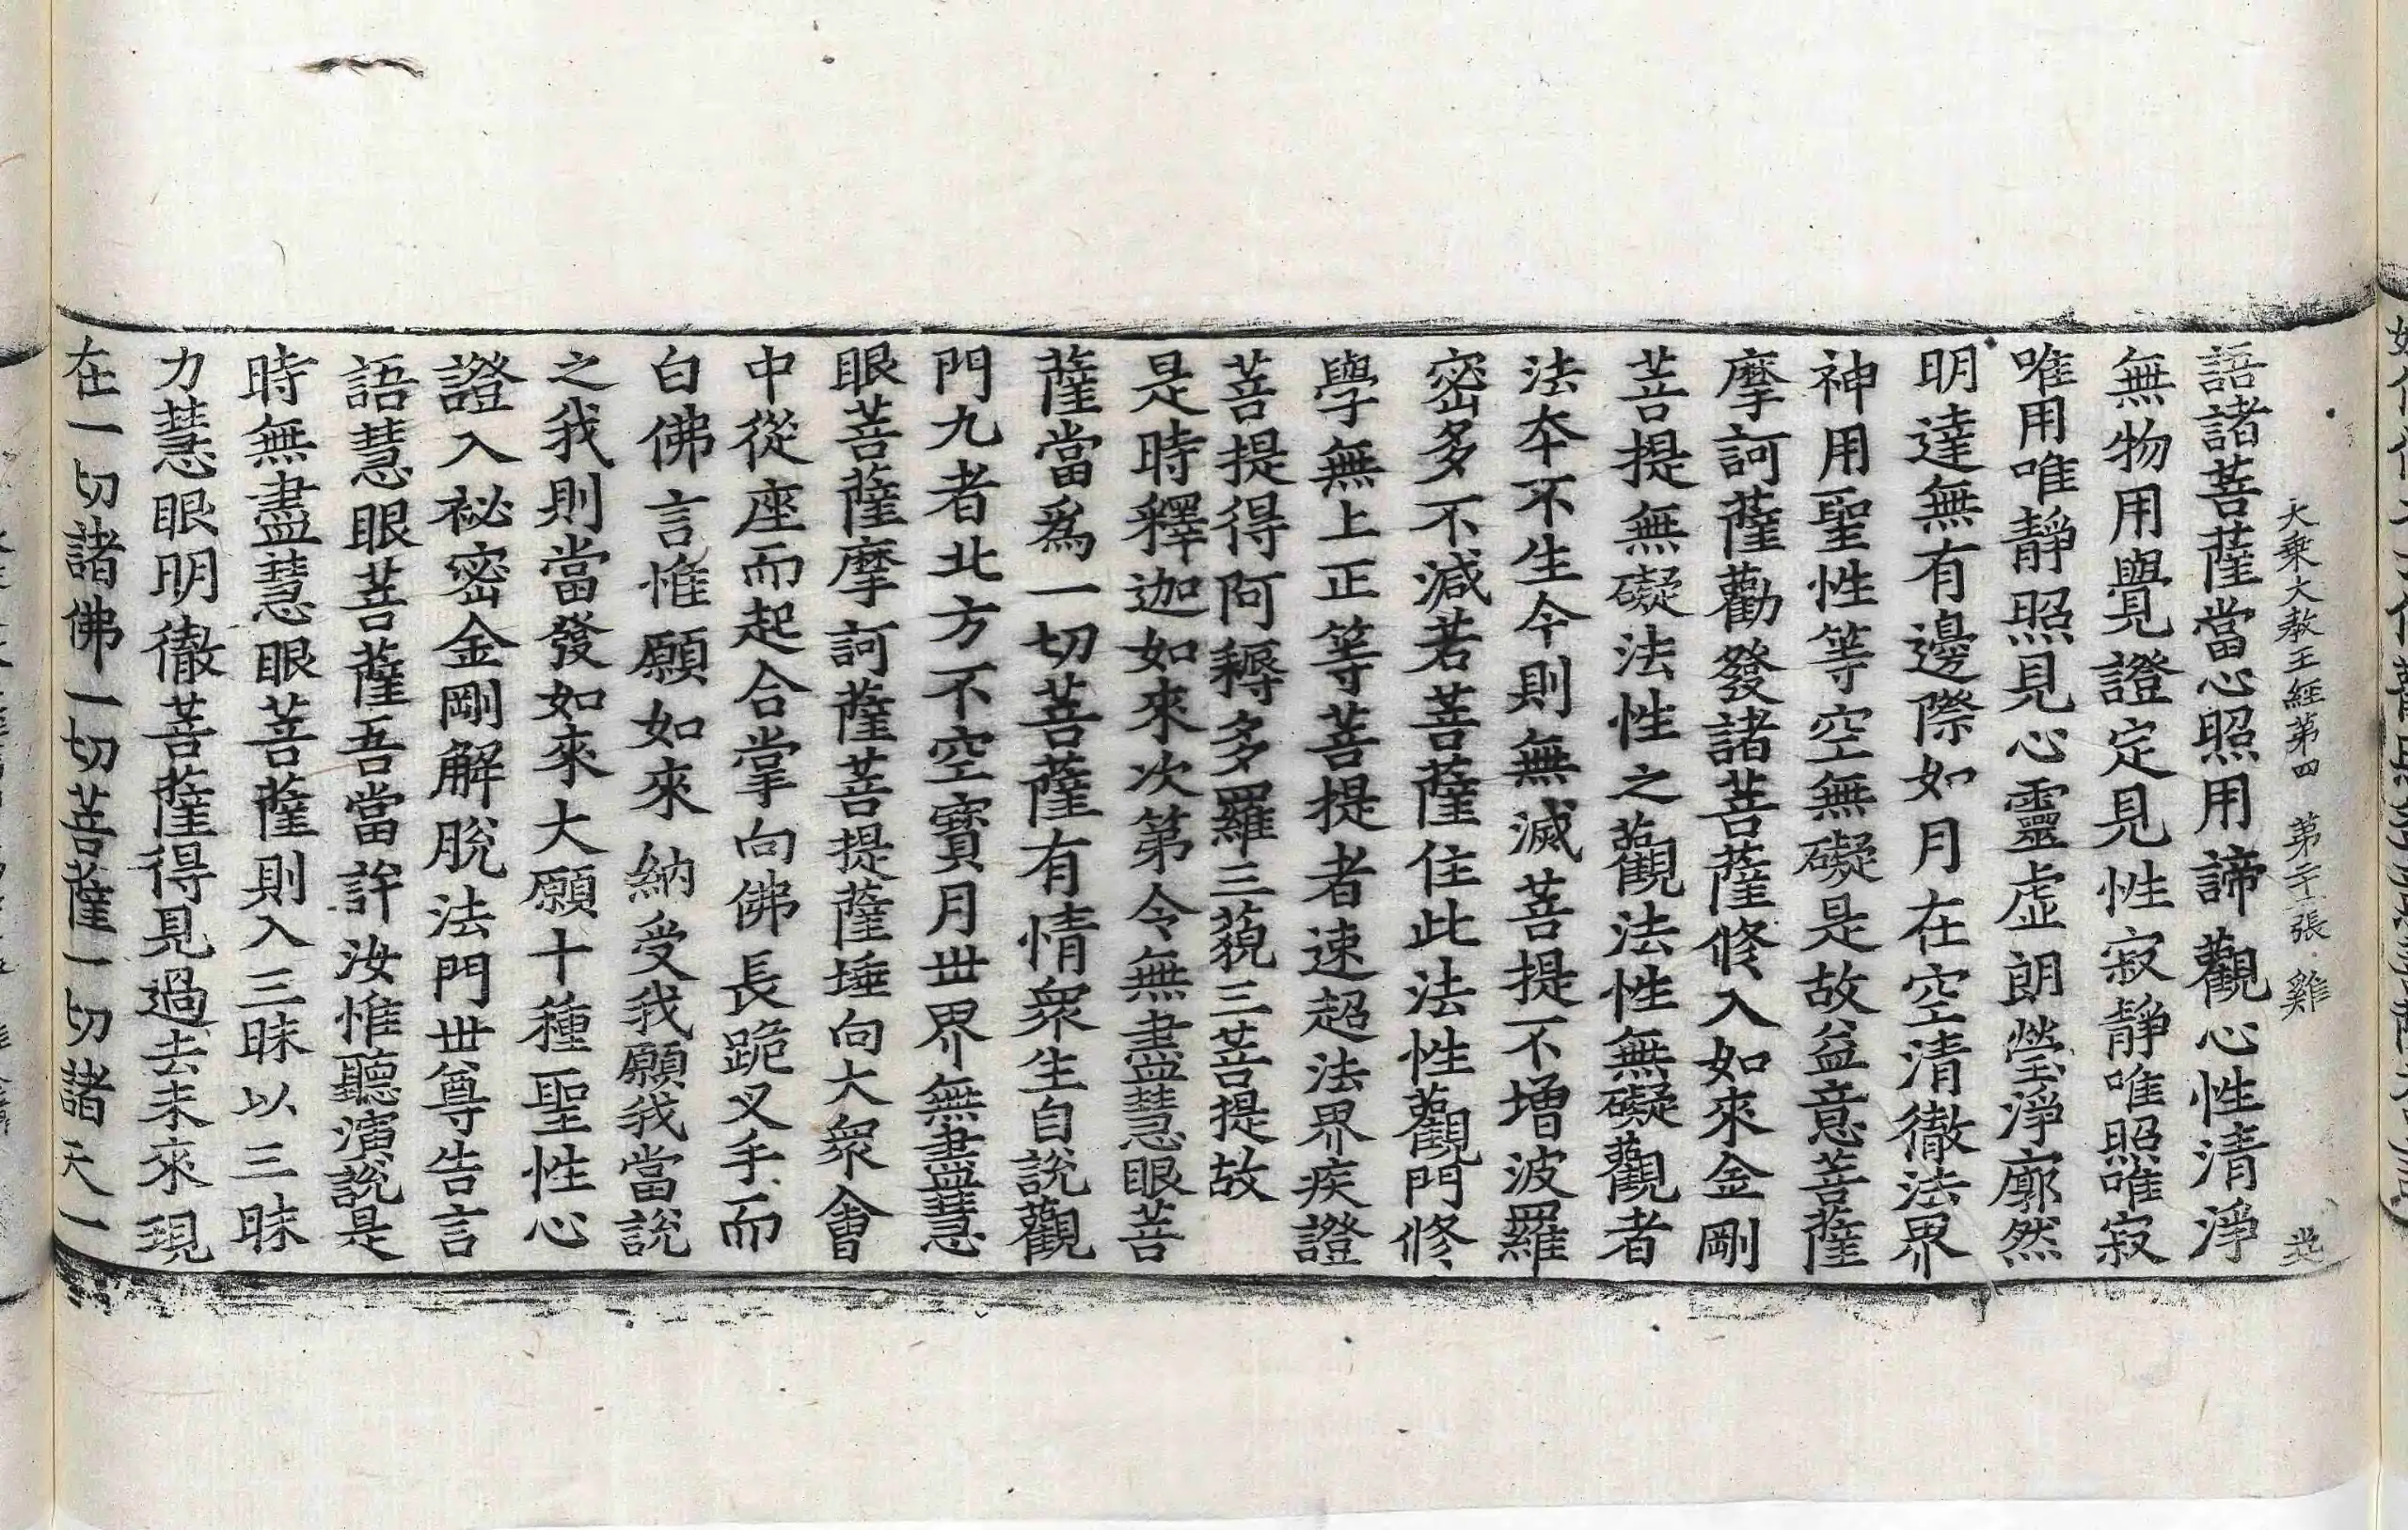 大乗大教王經第四　第二十張　雞
語諸菩薩當心照用諦觀心性清淨
無物用覺見證定見性寂靜唯照唯寂
唯用唯靜照見心靈虛朗瑩淨廓然
明達無有邊際如月在空清徹法界
神用聖性等空無礙是故益意菩薩
摩訶薩勸發諸菩薩修入如來金剛
菩提無礙法性之觀法性無礙觀者
法本不生今則無滅菩提不增波羅
密多不減若菩薩住此法性觀門修
學無上正等菩提者速超法界疾證
菩提得阿耨多羅三藐三菩提故
是時釋迦如來次第令無盡慧眼菩
薩當爲一切菩薩有情衆生自說觀
門九者北方不空寳月世界無盡慧
眼菩薩摩訶薩菩提薩埵向大衆會
中從座而起合掌向佛長跪叉手而
白佛言惟願如來納受我願我當說
之我則當發如來大願十種聖性心
證入祕密金剛解脫法門世尊告言
語慧眼菩薩吾當許汝惟聽演說是
時無盡慧眼菩薩則入三昧以三昧
力慧眼明徹菩薩得見過去未來現
在一切諸佛一切菩薩一切諸天一